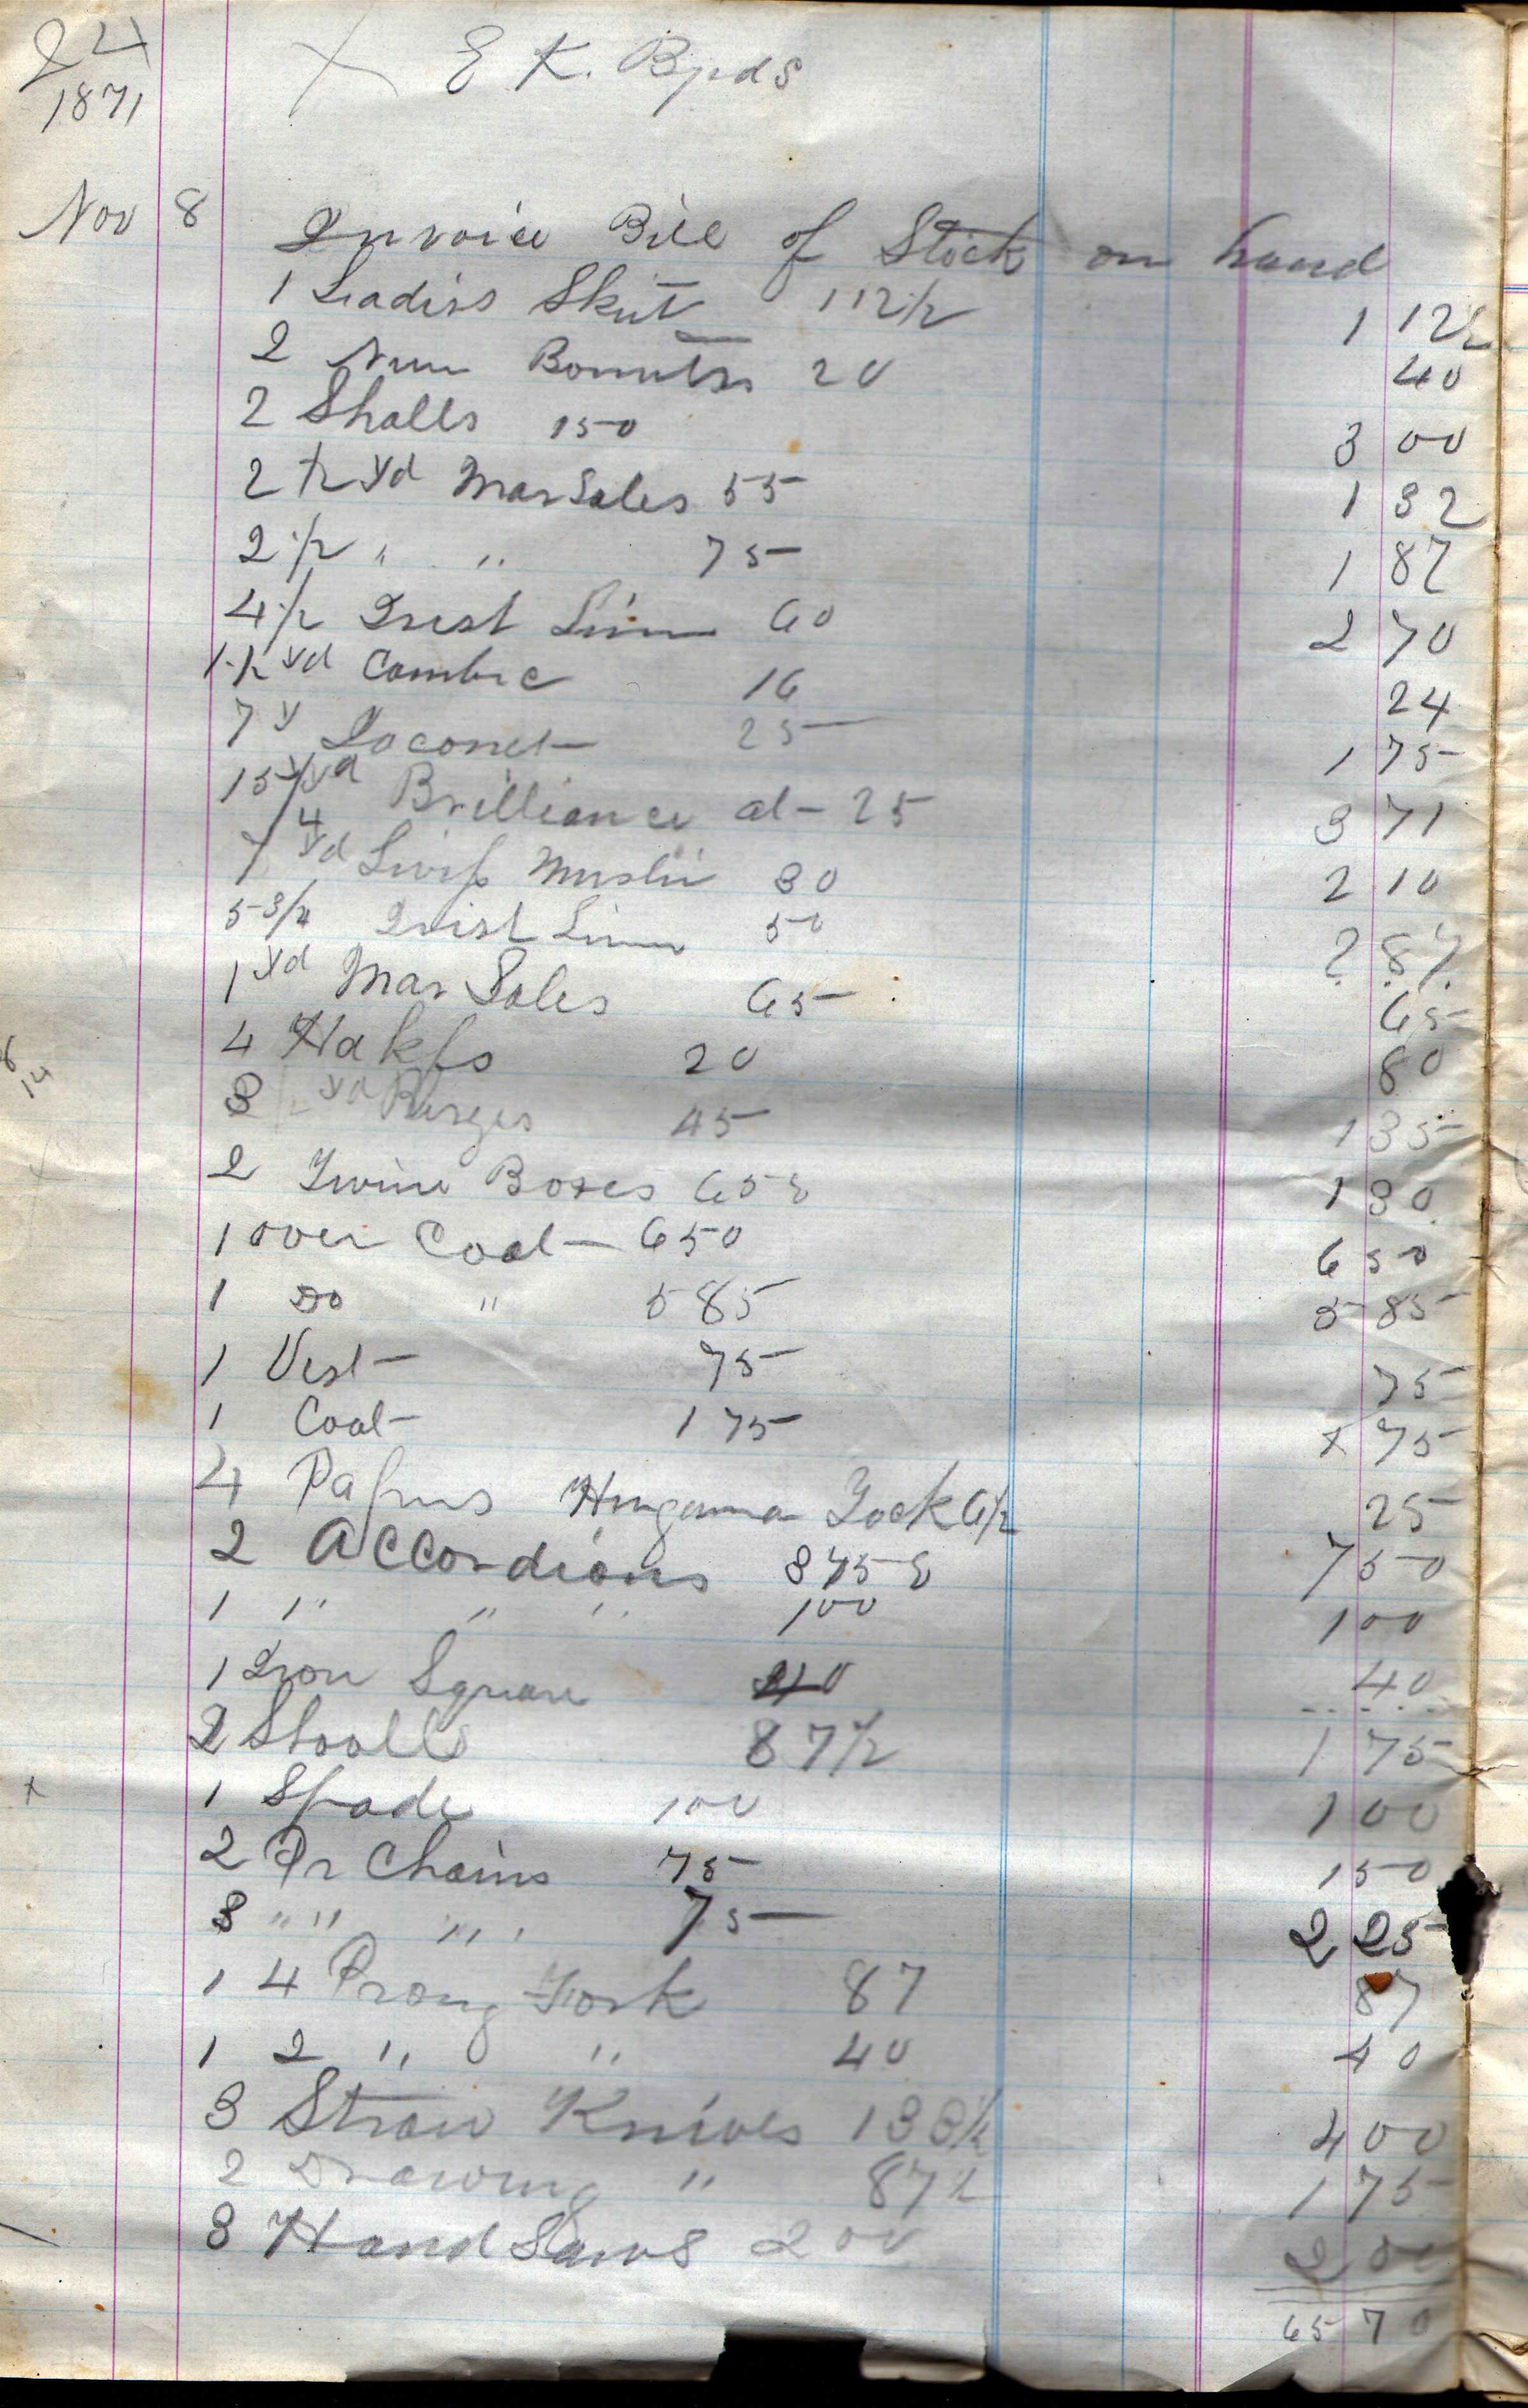 24
1871
X E K. Byrds
Nov 8 Invoice Bill of Stock on hand
1 Ladiss Skirt 1 12 1/2 1 12 1/2
2 Bonnets 20 40
2 Shalls 150 3 00
2 1/2 Yd MarSales 55 1 32
2 1/2 " " 75 1 87
4 1/2 Irish Linn 60 2 70
1 1/2 Yd Cambric 16 24
7 Y Jaconet 25 1 75
15 Yd Brilliance at 25 3 71
7 Yd Swiss Muslin 30 2 10
5 3/4 Irish Linn 50 2 87
1 Yd MarSales 65 65
4 Hdkfs 20 80
3 Yd 45 1 35
2 Twine Boxes 65 1 30
1 over Coat 650 6 50
1 Do " 5 85 5 85
1 Vest 75 75
1 Coat 1 75 75
4 Papers 6 1/2 25
2 Accordions 3 75 7 50
1 " " " 100 1 00
1 Iron Square 40 40
2 87 1/2 1 75
1 Spade 100 1 00
2 Pr Chains 75 1 50
3 " " " " 75 2 25
1 4 Prong Fork 87 87
1 2 " " 40 40
3 Straw Knives 1 33 1/3 4 00
2 Drawing " 87 1/2 1 75
3 Hand Saws 2 00 2 00
65 70